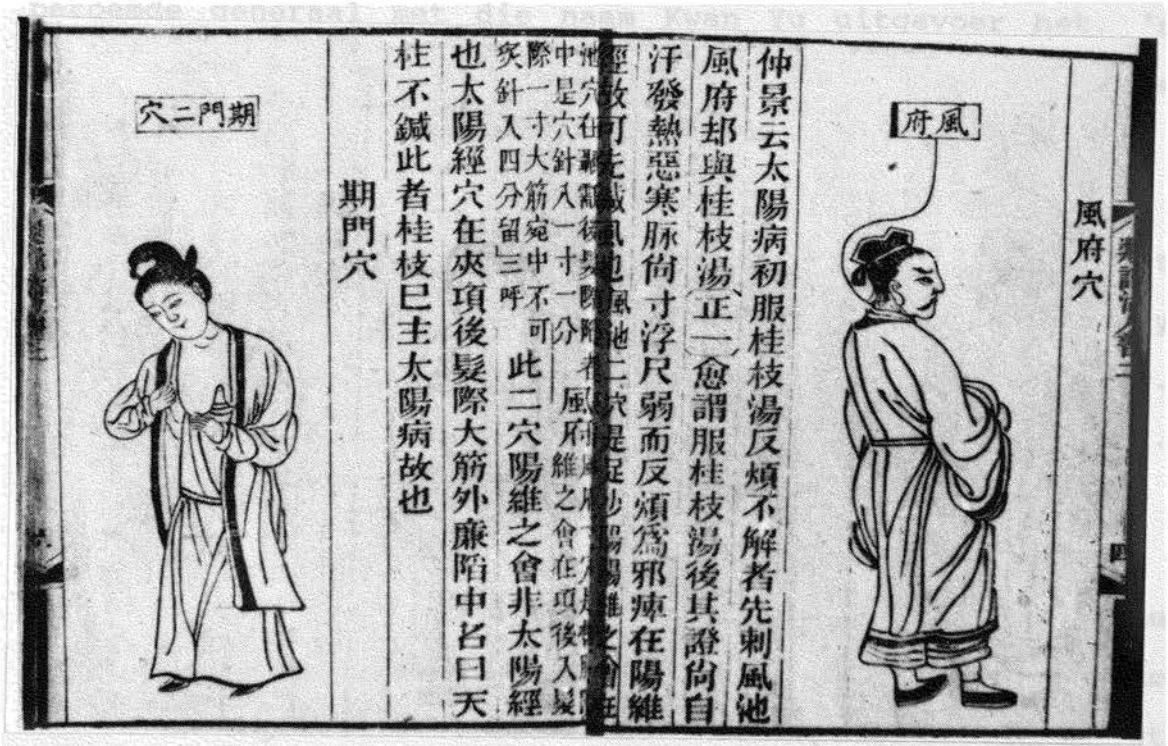 風府穴
風府
仲景云太陽病初服桂枝湯反煩不解者先刺風池
風府却與桂枝湯正一愈謂服桂枝湯後其證尙自
汗發熱惡寒脉尙寸浮尺弱而反煩爲邪㾏在陽維
經故可先鍼風也風池二穴是足少陽陽維之會在
池穴在顳顬後髮際陷者
中是穴針入一寸一分 風府 維之會在項後入髮
際一寸大筋宛中不可
灸針入四分留三呼 此二穴陽維之會非太陽經
也太陽經穴在夾項後髮際大筋外廉陷中名曰天
柱不鍼此者桂枝巳主太陽病故也
期門穴
期門二穴